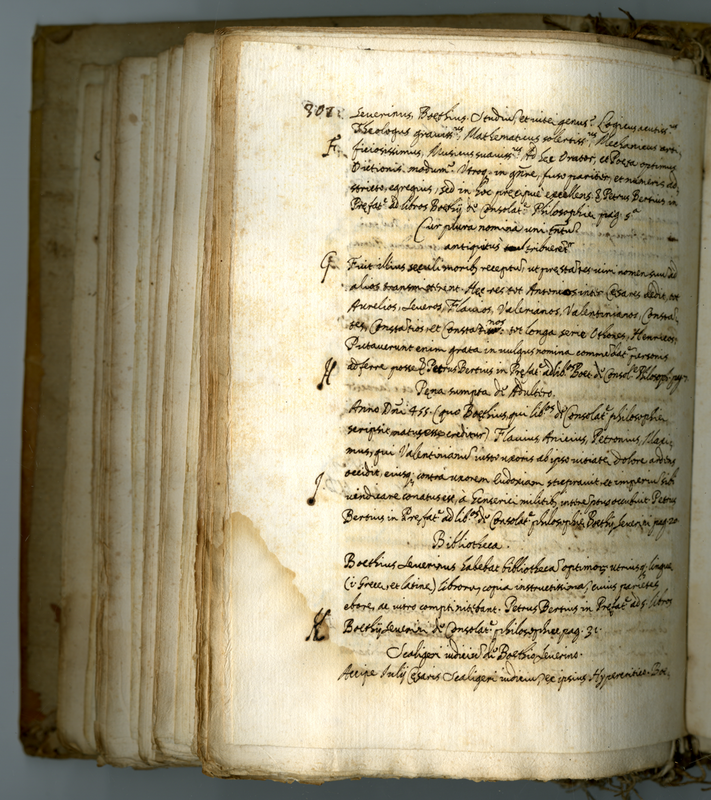 307. Severinus, Boethius. Studiu, et vitae genus? Logicus acutiss.us
Theologus graviss.us, Mathematicus solertiss.us, Mechanicus arti-
F. ficiosissimus, Musicus suaviss.us, Ad haec Orator, et Poeta optimus
Dictionis modum? Utroq; in gñre, fuso pariter, et numeris ad-
stricto, egregius, sed in hoc precipuè excellens. Petrus Bertius in
Prefat.e ad libros Boethij de Consolat.e Philosophie, pag. 5.a
Cur plura nomina uni
antiquitus tribueret.r
G. Fuit illius seculi moribus receptu, ut prestates viri nomen suu ad
alios transmitterent. Hec res tot Antonios inter Cesares dedit, tot
Aurelios, Severos, Flavios, Valerianos, Valentinianos, Consta-
tes, Constatios et Constatinos: tot longa serie Othones, Henricos:
Putaverunt enim grata in vulgus nomina commedat.e personis
H. adferre posse. Petrus Bertius in Prefat.e ad lib.os Boet. de Consol.e Philosoph. pag.
Pena sumpta de Adultro.
Anno Dñi 455. (quo Boethius, qui lib.os de Consolat.e philosophie
scripsit natus esse creditur) Flavius, Anicius, Petronius, Maxi-
mus, qui Valentinianu iusto uxoris ab ipso vitiate dolore
I. occidit, eiusq; contra uxorem Eudoxiam stupravit, et imperiu sibi
vendicare conatus est, à Genserici militib; interceptus occubuit. Petrus
Bertius in Prefat.e ad lib.os de Consolat.e philosophie Boethij Severini pag. 20.
Bibliotheca.
Boethius Severinus habebat bibliotheca optimoru utriusq; lingue
(i. Grece, et latine) librorum copia instructissima, cuius parietes
ebore, ac vitro comptì nitebant. Petrus Bertius in Prefat.e ad 5. libros
K. Boethij Severini de Consolat.e philosophie pag. 31.
Scaligeri iudiciu de Boethio Severino.
Accipe Iulij Cesaris Scaligeri iudiciu ex ipsius Hypercritico. Boe-